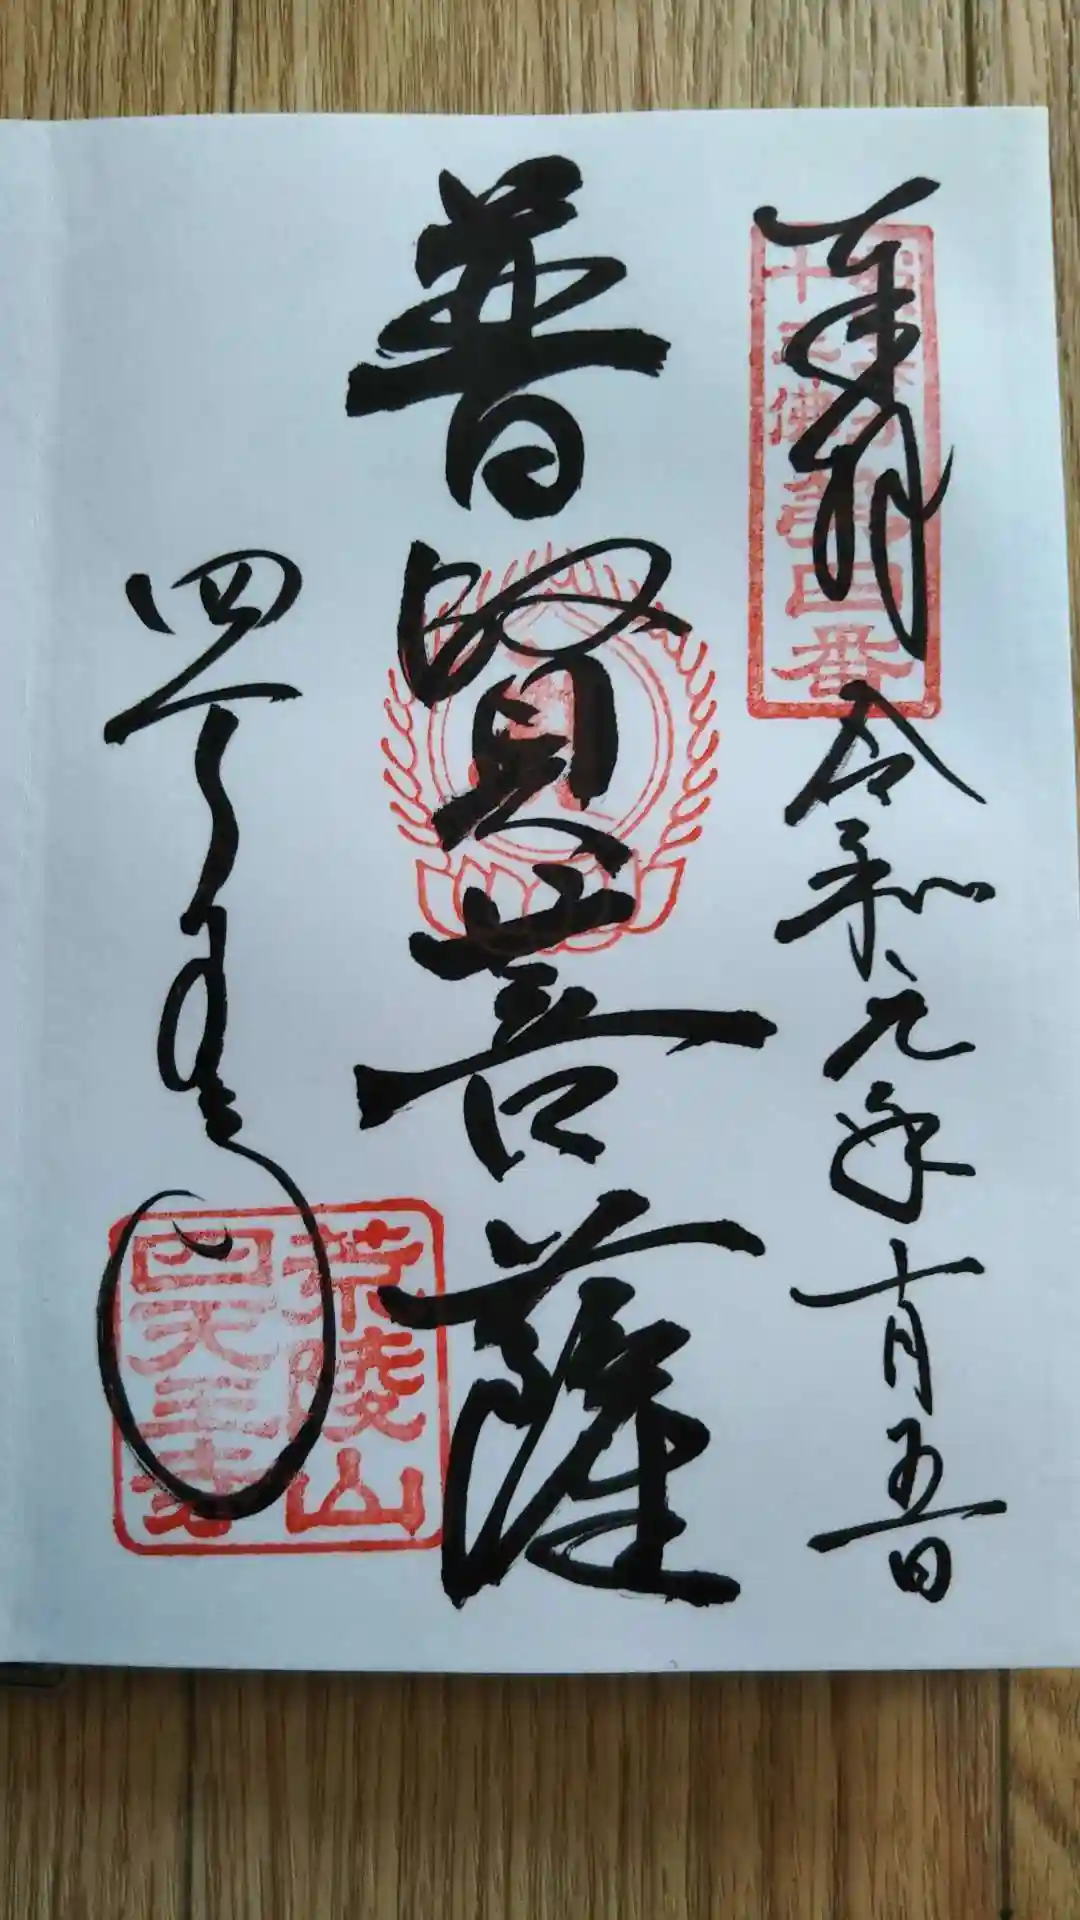 奉拝
令和元年十月五日
十三佛
第四番
普賢菩薩
四天王寺
荒陵山
四天王寺